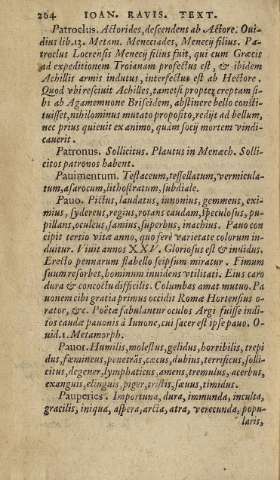 264 IOAN. RAVIS. TEXT.
Patroclus. Actorides, descendens ab Actore. Oui-
dius lib.12. Metam. Menœciades, Menecij filius. Pa-
troclus Locrensis Menecij filius fuit, qui cum Græcis
ad expeditionem Troianam profectus est, & ibidem
Achillis armis indutus, interfectus est ab Hectore.
Quod vbi resciuit Achilles, tametsi propter ereptam si-
bi ab Agamemnone Briseidem, abstinere bello consti-
tuisset, nihilominus mutato proposito, redijt ad bellum,
nec prius quieuit ex animo, quàm socij mortem vindi-
cauerit.
Patronus. Sollicitus. Plautus in Menæch. Solli-
citos patronos habent.
Pauimentum. Testaceum, tessellatum, vermicula-
tum, asarocum, lithostratum, subdiale.
Pauo. Pictus, laudatus, iunonius, gemmeus, exi-
mius, sydereus, regius, rotans caudam, speculosus, pu-
pillans, oculeus, samius, superbus, inachius. Pauo con
cipit tertio vitæ anno, quo feri varietate colorum in-
duitur. Viuit annos XXV. Gloriosus est & inuidus.
Erecto pennarum flabello seipsum miratur. Fimum
suum resorbet, hominum inuidens vtilitati. Eius caro
dura & concoctu difficilis. Columbas amat mutuo. Pa
uonem cibi gratia primus occidit Romæ Hortensius o-
rator, &c. Poëtæ fabulantur oculos Argi fuisse indi-
tos caudæ pauonis à Iunone, cui sacer est ipse pauo. O-
uid. 1. Metamorph.
Pauor. Humilis, molestus, gelidus, horribilis, trepi
dus, fœmineus, penetrās, cæcus, dubius, terrificus, solli-
citus, degener, lymphaticus, amens, tremulus, acerbus,
exanguis, elinguis, piger, tristis, sæuus, timidus.
Pauperies. Importuna, dura, immunda, inculta,
gracilis, iniqua, aspera, arcta, atra, verecunda, popu-
laris,